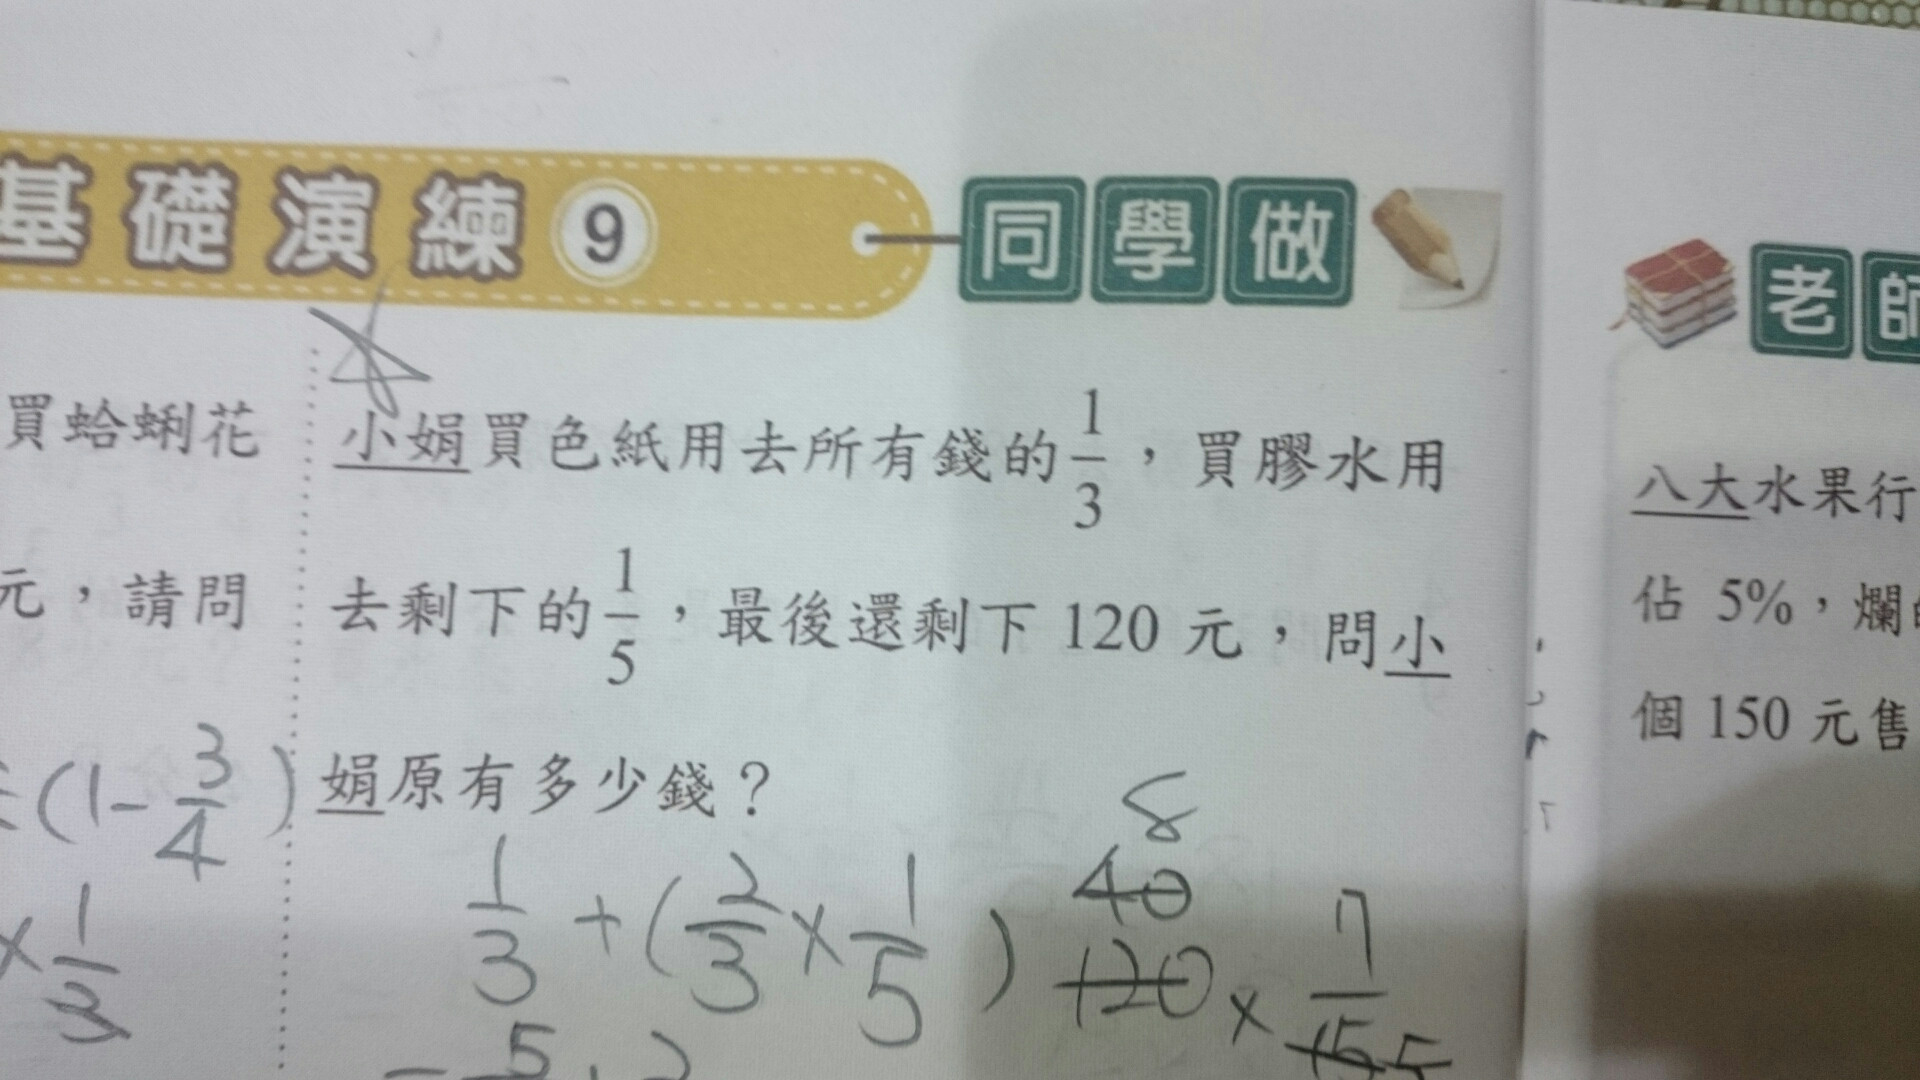 基礎演練9
同學做
老師
買蛤蜊花
元，請問
(1-3/4)
×1/3
小娟買色紙用去所有錢的1/3，買膠水用
去剩下的1/5，最後還剩下120元，問小
娟原有多少錢？
1/3+(2/3×1/5)
8
40
120×7/15 5
八大水果行
佔5%，爛
個150元售